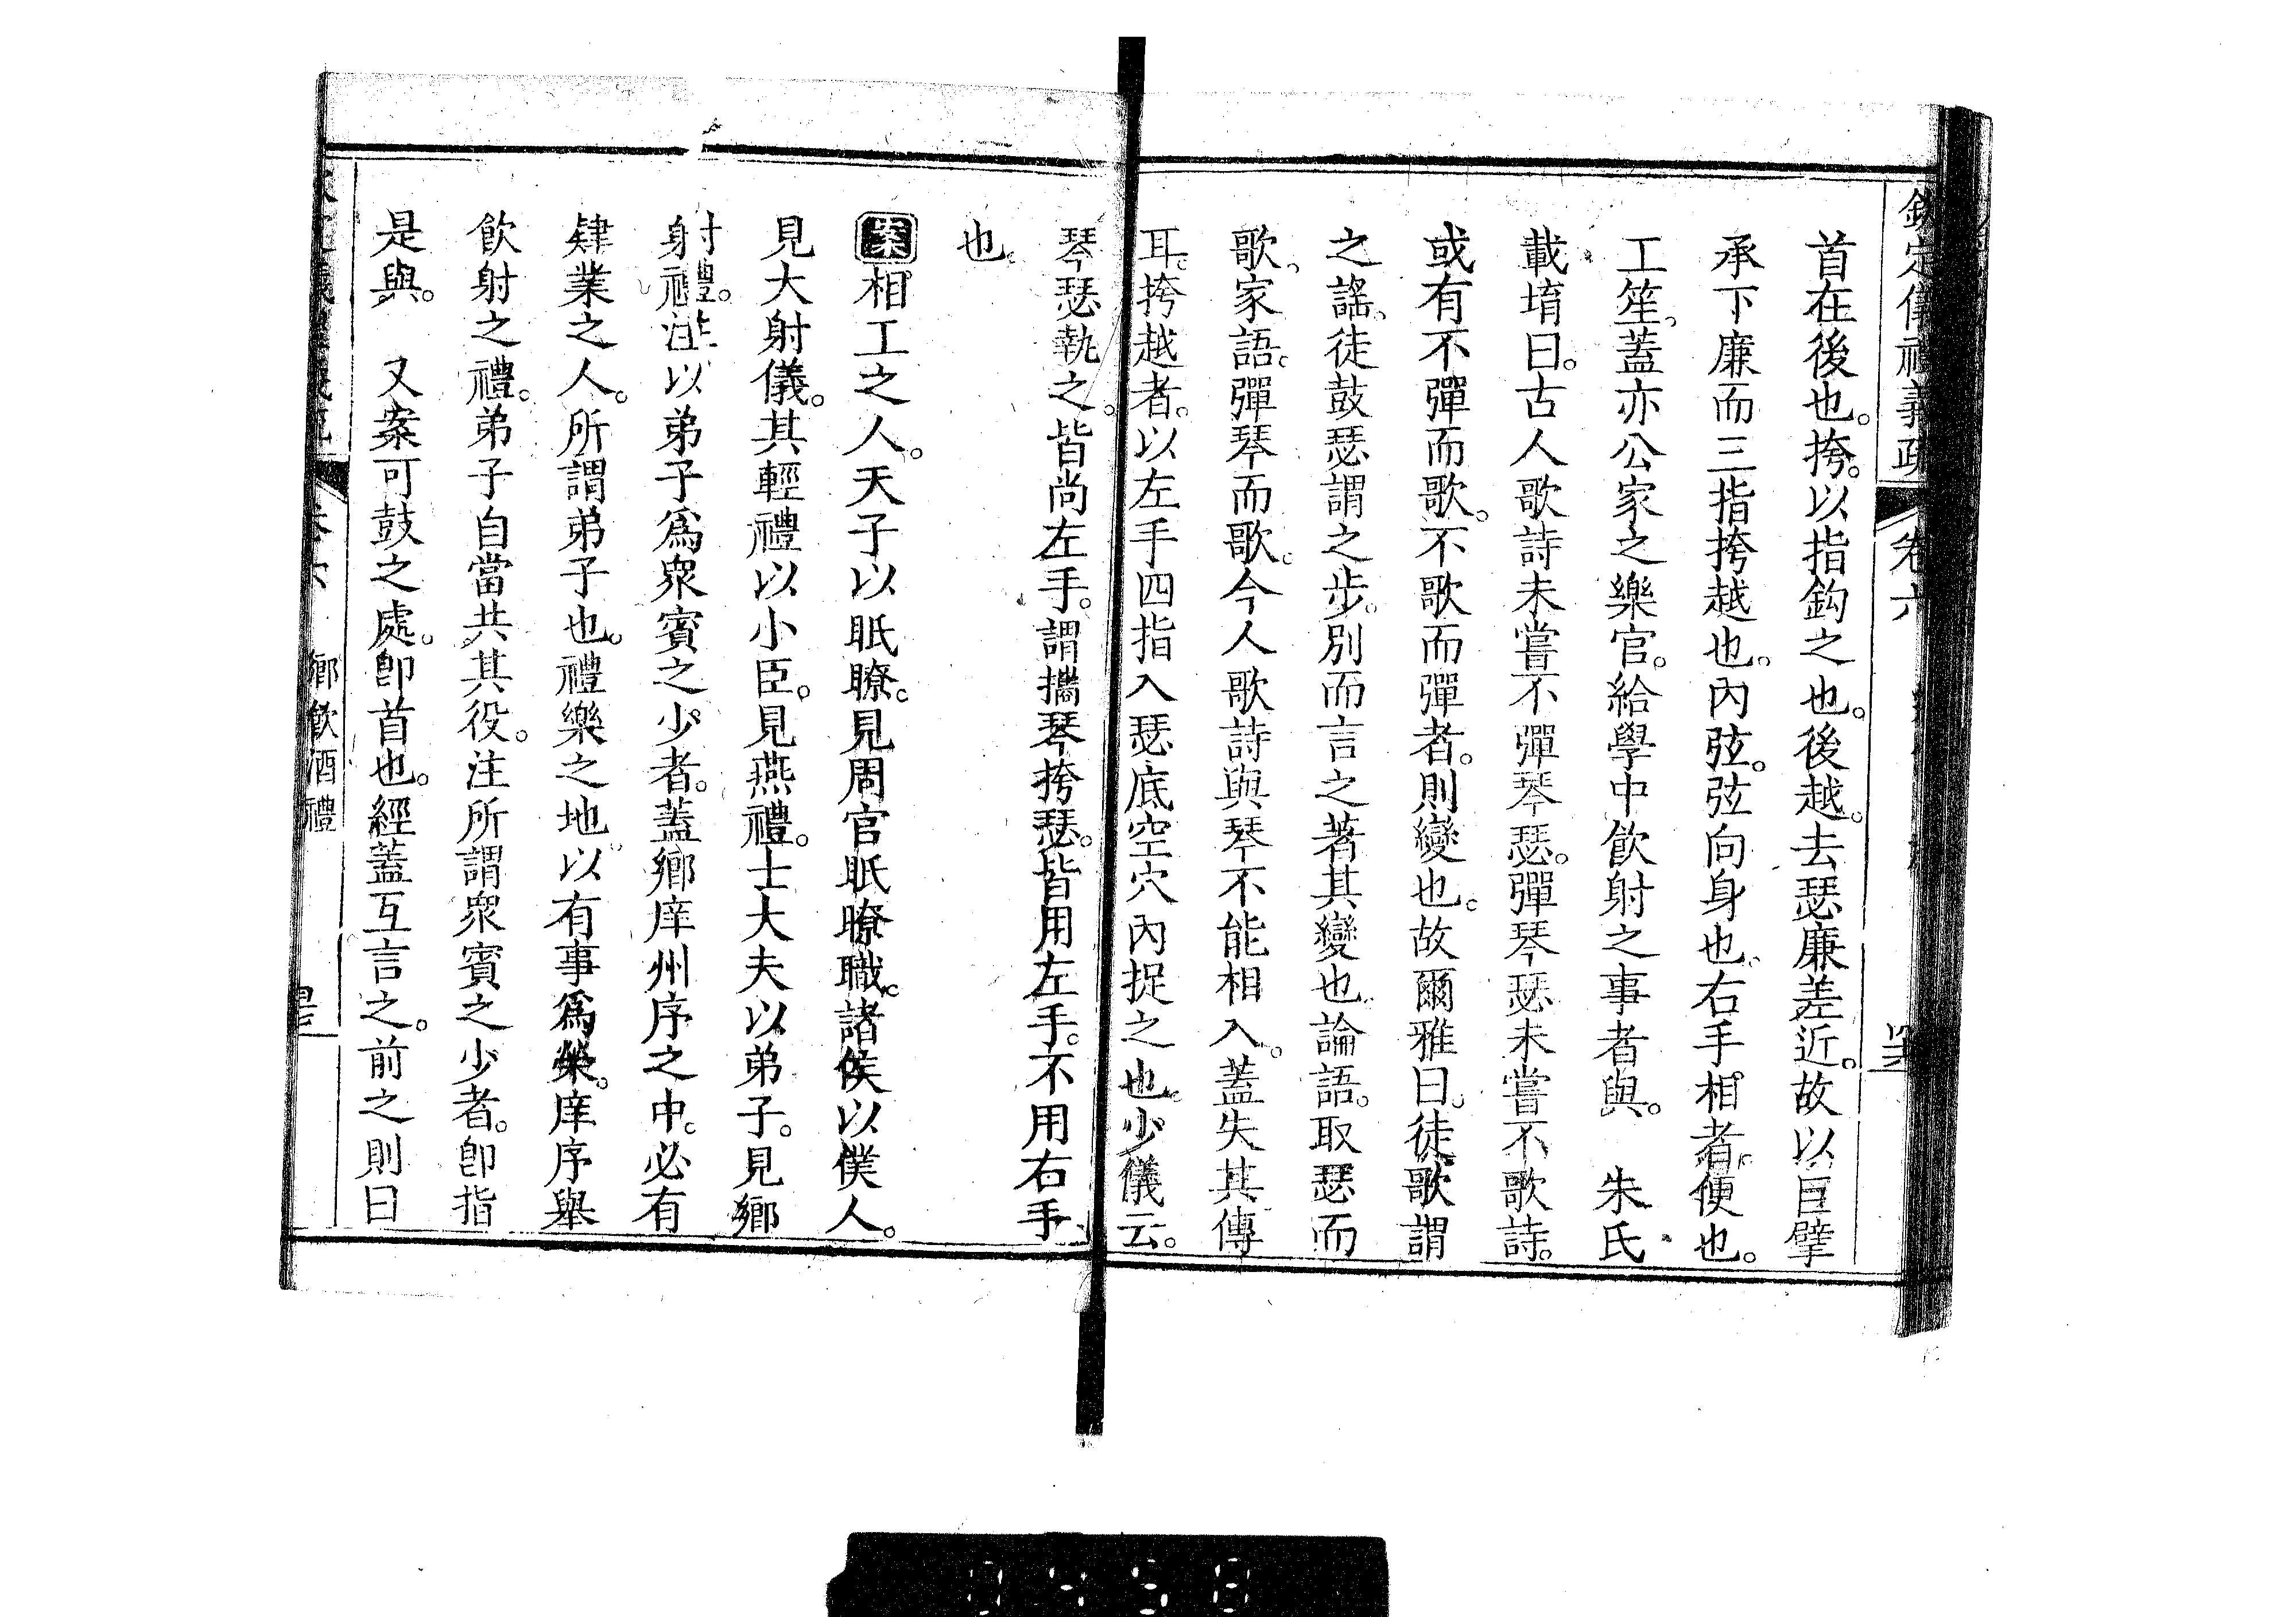 欽定儀禮義疏 卷六
首在後也。挎。以指鈎之也。後越。去瑟廉差近。故以巨擘
承下廉而三指挎越也。內弦。弦向身也。右手相者。便也。
工笙。蓋亦公家之樂官。給學中飲射之事者與。 朱氏
載堉曰。古人歌詩未嘗不彈琴瑟。彈琴瑟未嘗不歌詩。
或有不彈而歌。不歌而彈者。則變也。故爾雅曰。徒歌謂
之謠。徒鼓瑟謂之步。別而言之著其變也。論語。取瑟而
歌。家語。彈琴而歌。今人歌詩與琴不能相入。蓋失其傳
耳。挎越者。以左手四指入瑟底空穴內捉之也。少儀云。
琴瑟執之。皆尚左手。謂攜琴挎瑟。皆用左手。不用右手
也。
案相工之人。天子以眡瞭。見周官眡瞭職。諸侯以僕人。
見大射儀。其輕禮以小臣。見燕禮。士大夫以弟子。見鄉
射禮。注以弟子爲衆賓之少者。蓋鄉庠州序之中。必有
肄業之人。所謂弟子也。禮樂之地。以有事爲榮。庠序舉
飲射之禮。弟子自當共其役。注所謂衆賓之少者。卽指
是與。 又案可鼓之處。卽首也。經蓋互言之。前之則曰
鄉飲酒禮